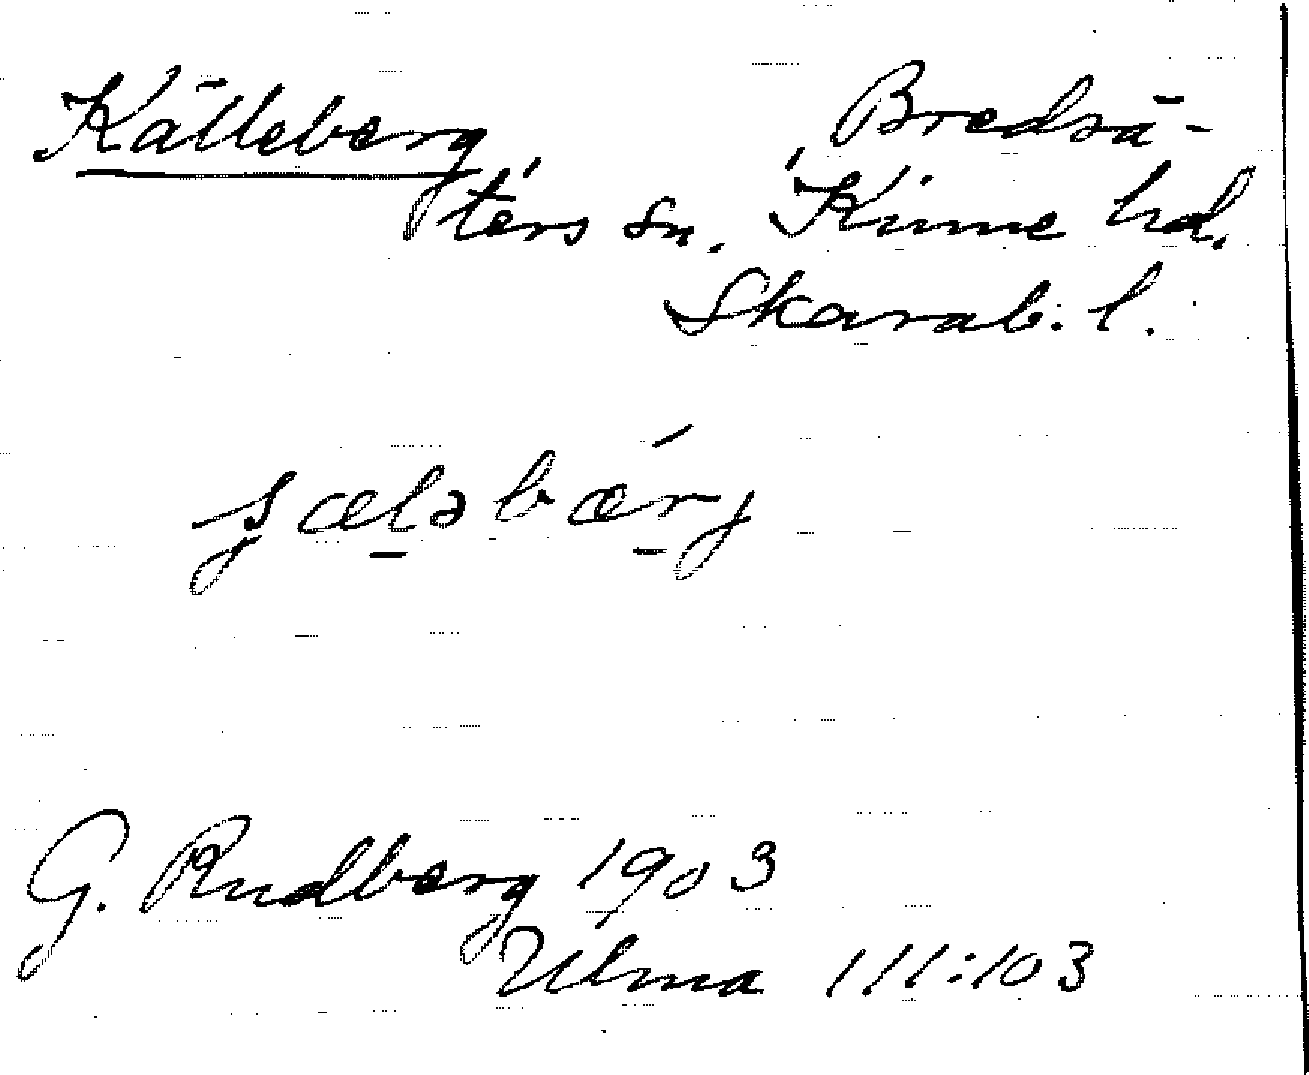 Källeberg Bredsä-
ters sn. Kinne hd.
Skarab. l.
G. Rudberg 1903
Ulma 111:103